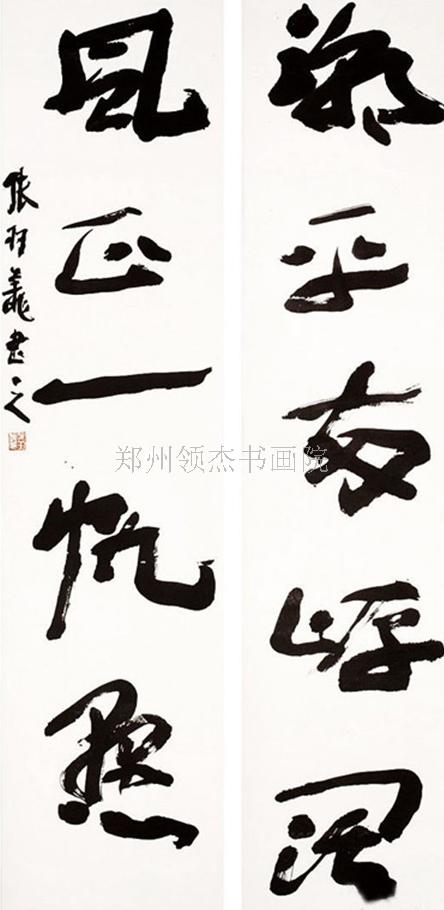 潮平两岸阔
风正一帆悬
张羽翔书之
郑州领杰书画院